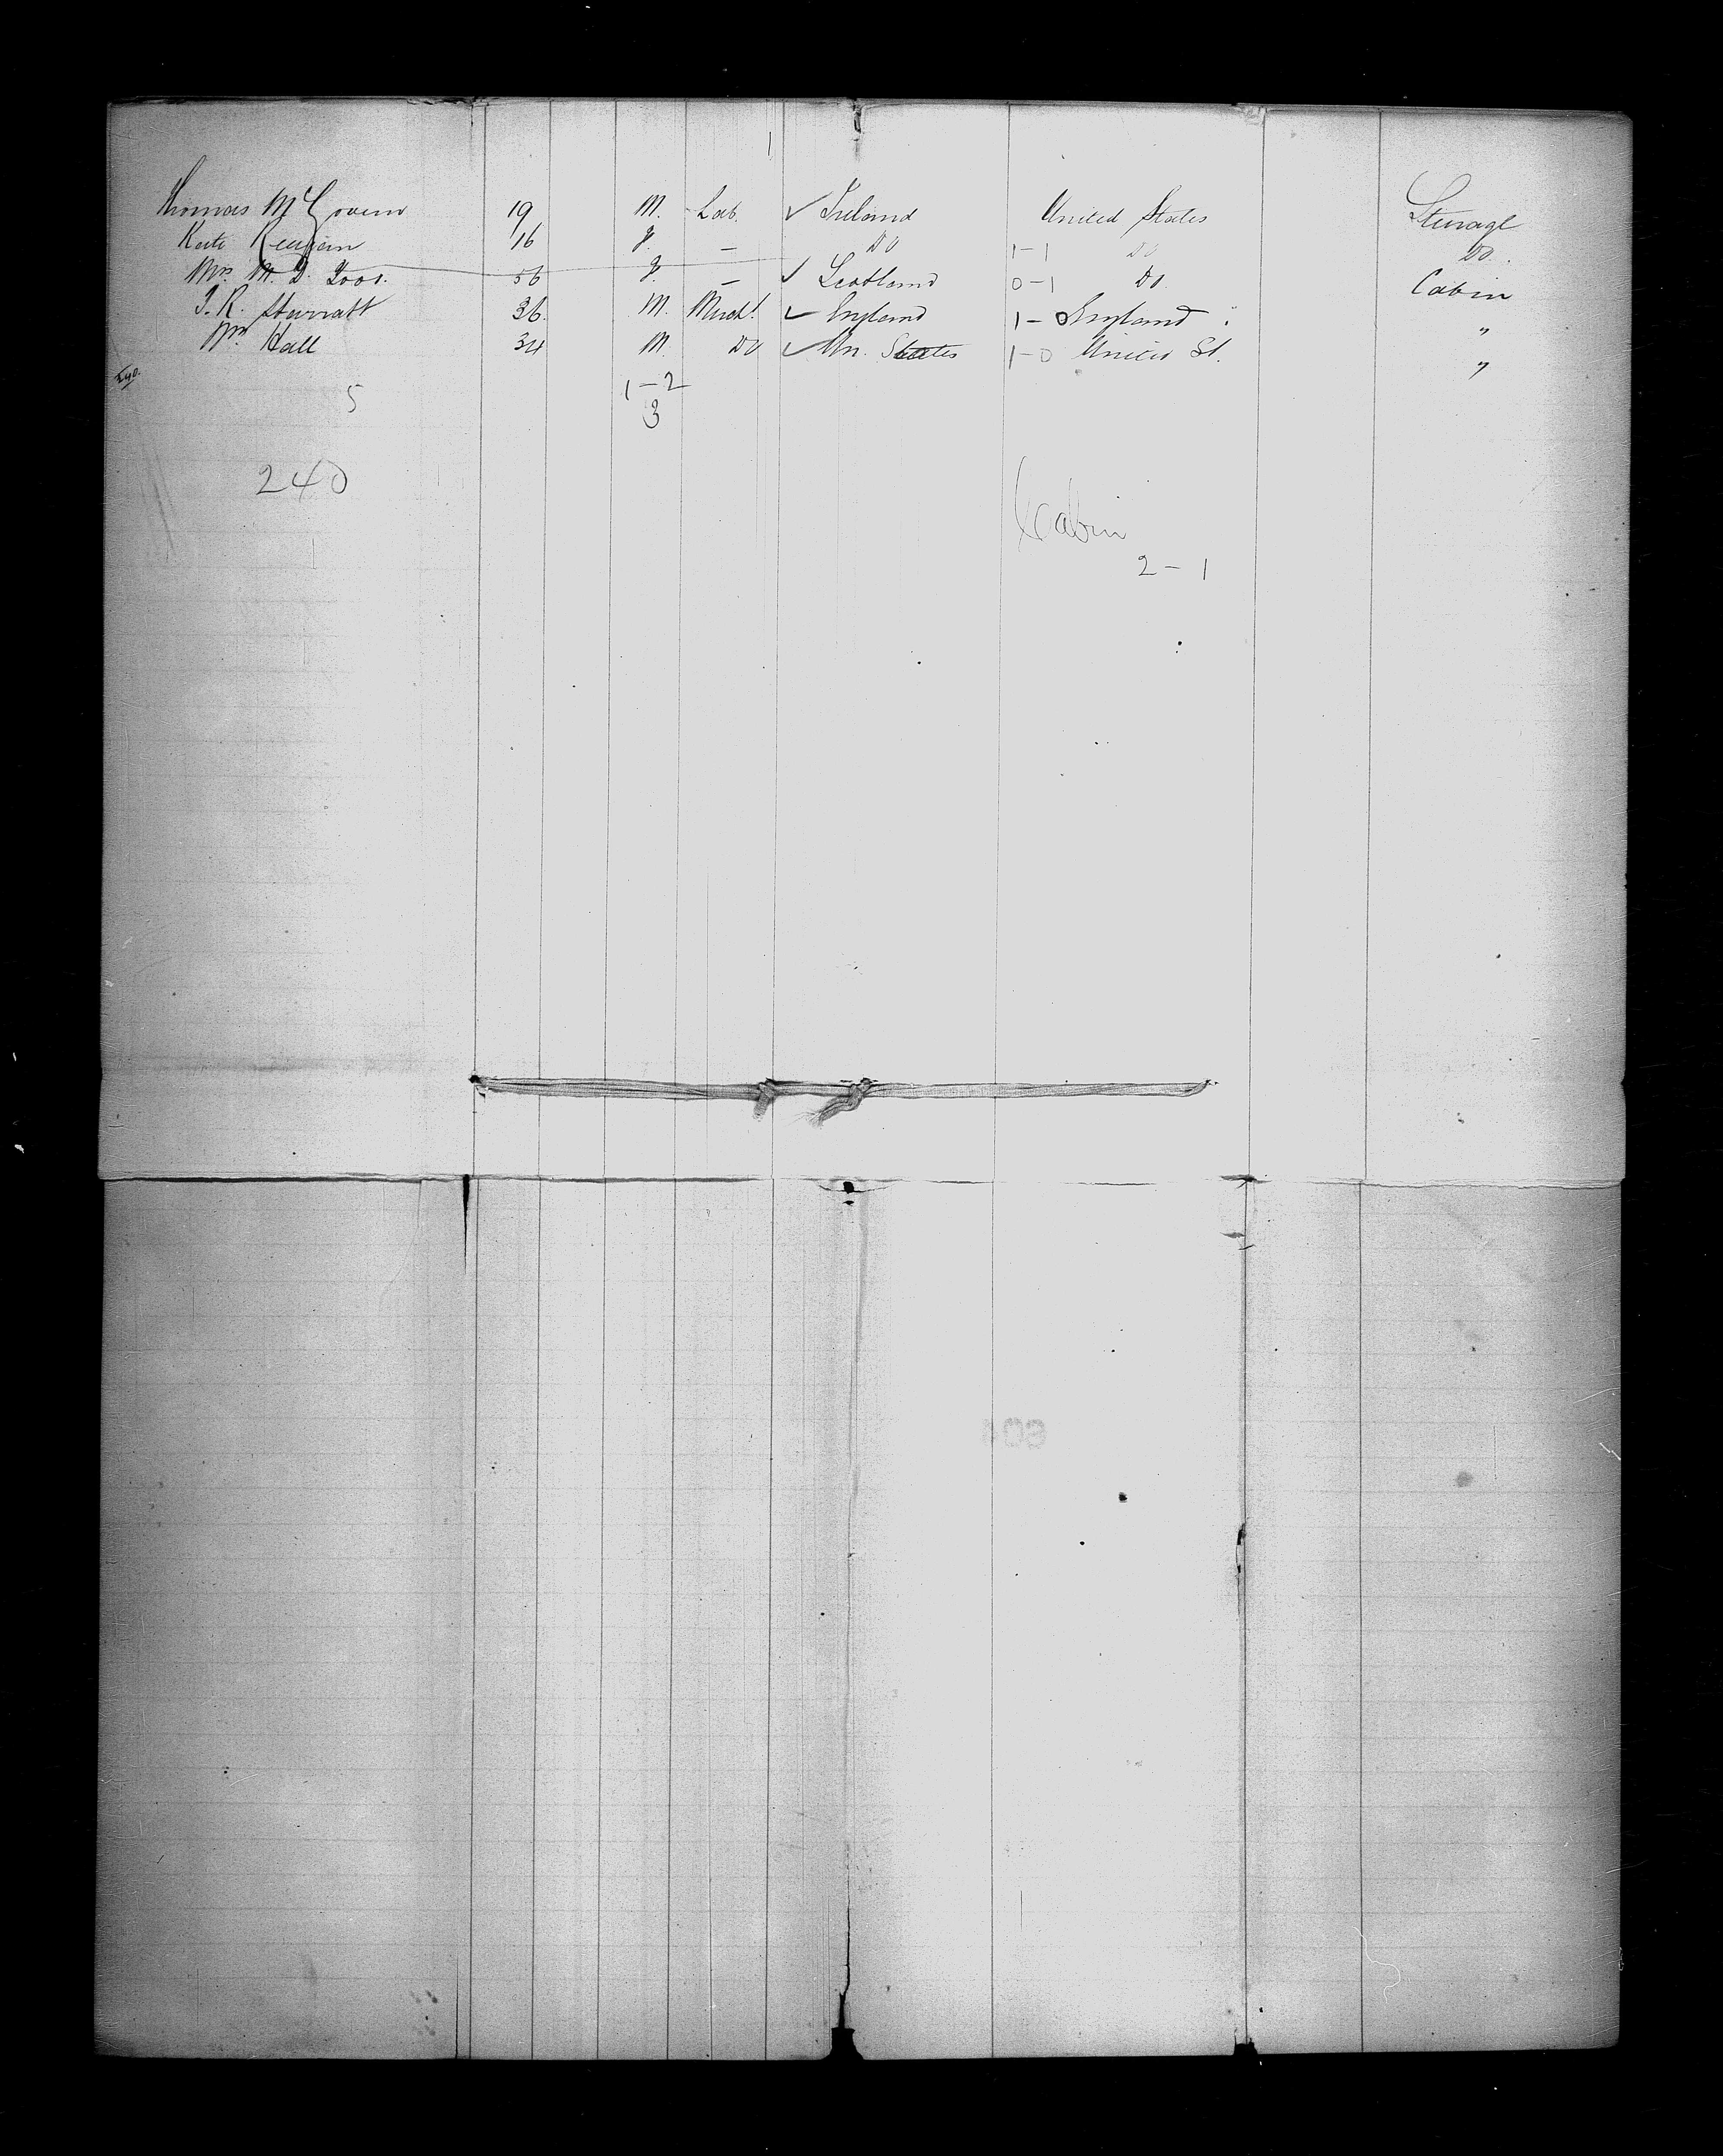 Thomas McGovern 19 M. Lab. ✓ Ireland United States Steerage
Kate Reagan 16 F. — Do 1-1 Do Do.
Mrs. M. D. 56 F. — ✓ Scotland 0-1 Do. Cabin
J. R. Starratt 36. M. Mercht. ✓ England 1-0 England " "
Mr Hall 34 M. Do ✓ Un. States 1-0 United St. "
240.
5 1-2
3
240
Cabin
2-1